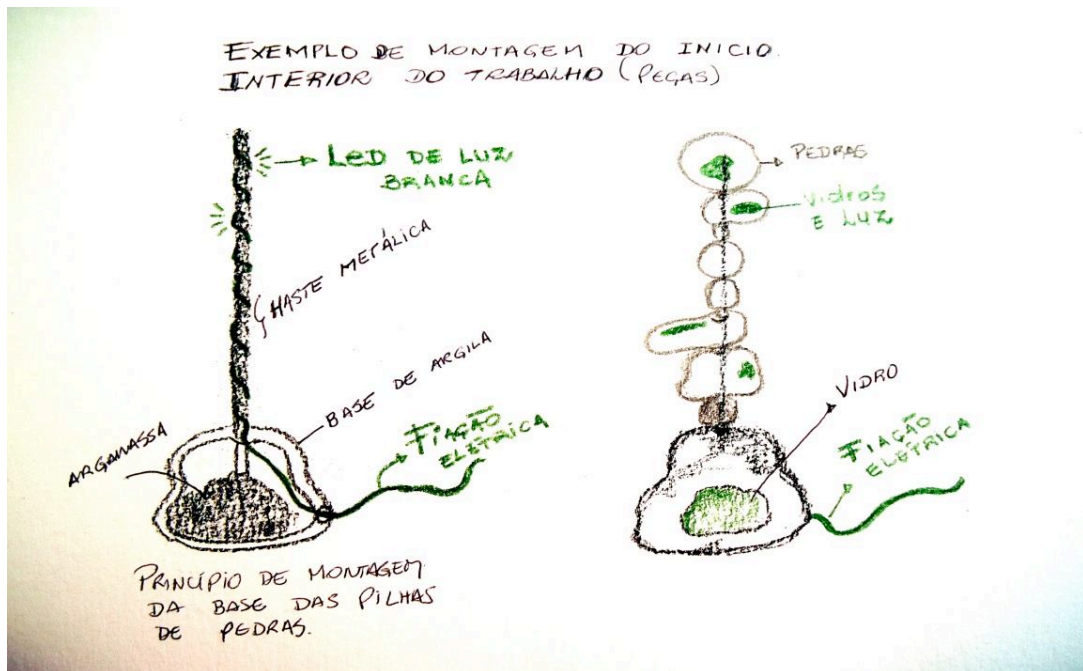 EXEMPLO DE MONTAGEM DO INICIO.
INTERIOR DO TRABALHO (PEÇAS)
LED DE LUZ
BRANCA
HASTE METÁLICA
BASE DE ARGILA
ARGAMASSA
FIAÇÃO
ELÉTRICA
PRINCÍPIO DE MONTAGEM
DA BASE DAS PILHAS
DE PEDRAS.
PEDRAS
VIDROS
E LUZ
VIDRO
FIAÇÃO
ELÉTRICA